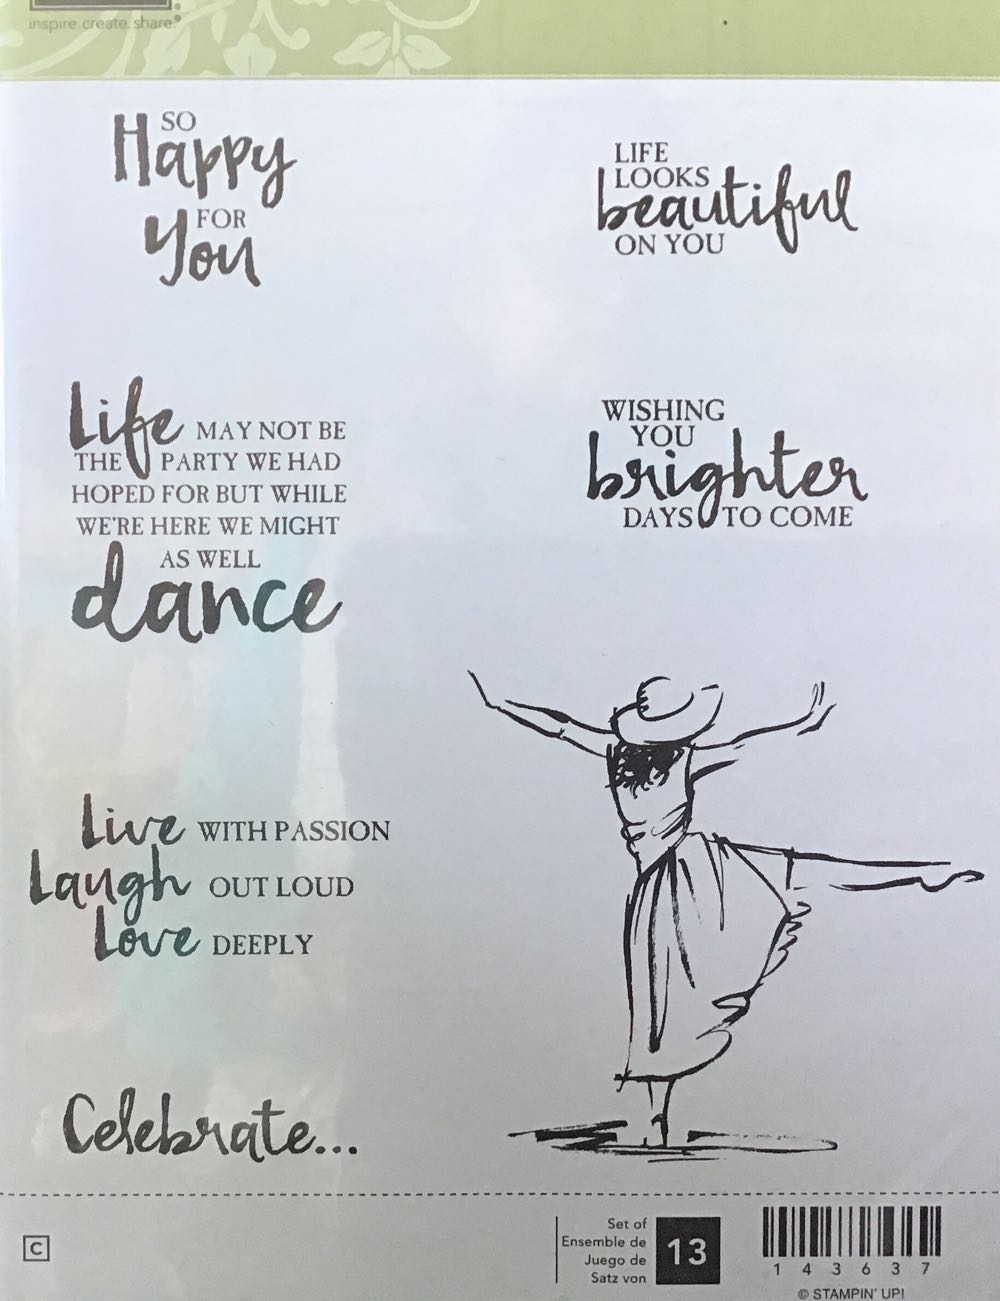 inspire. create. share.®
SO
Happy
FOR
You
LIFE
LOOKS
beautiful
ON YOU
Life MAY NOT BE
THE PARTY WE HAD
HOPED FOR BUT WHILE
WE'RE HERE WE MIGHT
AS WELL
dance
WISHING
YOU
brighter
DAYS TO COME
Live WITH PASSION
Laugh OUT LOUD
Love DEEPLY
Celebrate...
C
Set of
Ensemble de
Juego de
Satz von
13
1 4 3 6 3 7
© STAMPIN' UP!